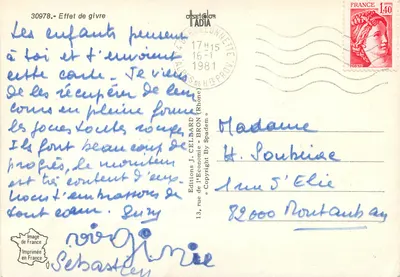 30978.- Effet de givre
Les enfants pensent
à toi et t'envoient
cette carte - Je viens
de les récupérer de leur
cours en pleine forme
les joues toutes rouges
Ils font beaucoup de
progrès, le moniteur
est très content d'eux
Nous t'embrassons de
tout cœur. Suzy
Virginie
Sébastien
Image
de France
Imprimée
en France
IADIA
Editions J. CELLARD
13, rue de l'Economie - BRON (Rhône)
"Copyright By Spadem"
17H15
16-1
1981
FRANCE
1,40
Madame
H. Soubeirac
1 rue S'Elie
82000 Montauban